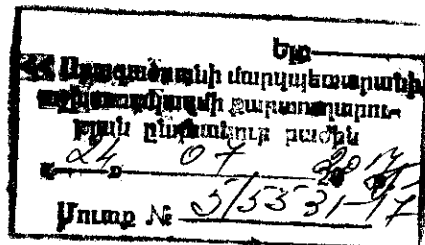 Ելք
ՀՀ Արագածոտնի մարզպետարանի
աշխատակազմի Քարտուղարու-
թյան ընդհանուր բաժին
24 07 2017
Մուտք № 5/5531-17